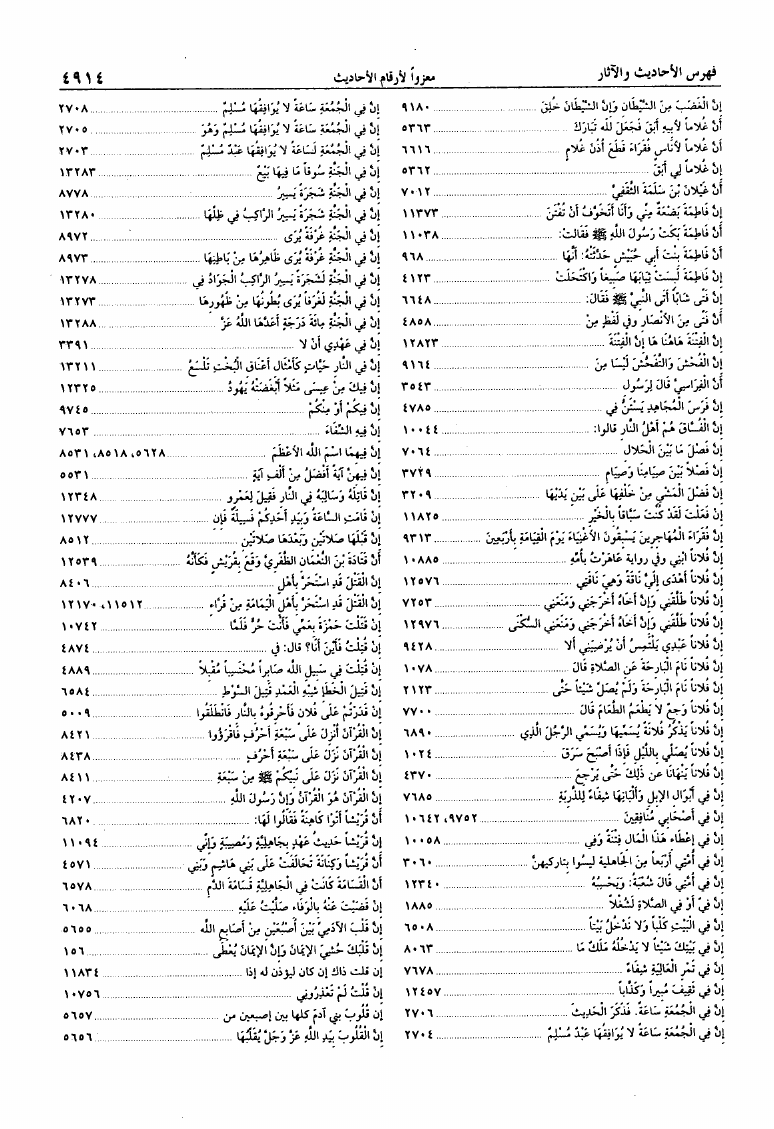 فهرس الأحاديث والآثار
معزواً لأرقام الأحاديث
٤٩١٤
إنَّ الْغَضَبَ مِنَ الشَّيْطَانِ وَإِنَّ الشَّيْطَانَ خُلِقَ ٩١٨٠
أَنَّ غُلاماً لأبيهِ أبَقَ فَجَعَلَ للَّه تَبَارَكَ ٥٣٦٣
أَنَّ غُلاماً لأُناسٍ فُقَرَاءَ قَطَعَ أُذُنَ غُلام ٦٦١٦
إنَّ غُلاماً لي أبَقَ ٥٣٦٢
أَنَّ غَيْلَانَ بْنَ سَلَمَةَ الثَّقَفِيَّ ٧٠١٢
إنَّ فَاطِمَةَ بَضْعَةٌ مِنِّي وَأَنَا أَتَخَوَّفُ أَنْ تُفْتَنَ ١١٣٧٣
أَنَّ فَاطِمَةَ بَكَتْ رَسُولَ اللَّهِ ﷺ فَقَالَتْ: ١١٠٣٨
أَنَّ فَاطِمَةَ بِنْتَ أَبِي حُبَيْشٍ حَدَّثَتْهُ: أَنَّهَا ٩٦٨
إنَّ فَاطِمَةَ لَبِسَتْ ثِيَابَهَا صَبِيغاً وَاكْتَحَلَتْ ٤١٢٣
إنَّ فَتًى شَابّاً أتَى النَّبِيَّ ﷺ فَقَالَ: ٦٦٤٨
أَنَّ فَتًى مِنَ الأَنْصَارِ وفي لَفْظٍ مِنْ ٤٨٥٨
إنَّ الْفِتْنَةَ هَاهُنَا هَا إنَّ الْفِتْنَةَ ١٢٨٢٣
إنَّ الْفُحْشَ وَالتَّفَحُّشَ لَيْسَا مِنَ ٩١٦٤
أنَّ الْفِرَاسِيَّ قَالَ لِرَسُولِ ٣٥٤٣
إنَّ فَرَسَ الْمُجَاهِدِ يَسْتَنُّ فِي ٤٧٨٥
إنَّ الْفُسَّاقَ هُمْ أَهْلُ النَّارِ قالوا: ١٠٠٤٤
إنَّ فَصْلَ مَا بَيْنَ الْحَلَالِ ٧٠٦٤
إنَّ فَصْلاً بَيْنَ صِيَامِنَا وَصِيَام ٣٧٢٩
إنَّ فَضْلَ الْمَشْيِ مِنْ خَلْفِهَا عَلَى بَيْنِ يَدَيْهَا ٣٢٠٩
إنْ فَعَلْتَ لَقَدْ كُنْتَ سَبَّاقاً بِالْخَيْرِ ١١٨٢٥
إنَّ فُقَرَاءَ الْمُهَاجِرِينَ يَسْبِقُونَ الأَغْنِيَاءَ يَوْمَ الْقِيَامَةِ بِأَرْبَعِينَ ٩٣١٣
إنَّ فُلاناً ابْنِي وفي رواية عَاهَرْتُ بِأُمِّهِ ١٠٨٨٥
إنَّ فُلاناً أَهْدَى إِلَيَّ نَاقَةً وَهِيَ نَاقَتِي ١٢٥٧٦
إنَّ فُلاناً طَلَّقَنِي وَإِنَّ أَخَاهُ أَخْرَجَنِي وَمَنَعَنِي ٧٢٥٣
إنَّ فُلاناً طَلَّقَنِي وَإِنَّ أَخَاهُ أَخْرَجَنِي وَمَنَعَنِي السُّكْنَى ١٢٩٧٦
إنَّ فُلاناً عَبْدِي يَلْتَمِسُ أَنْ يُرْضِيَنِي أَلا ٩٤٢٨
إنَّ فُلاناً نَامَ الْبَارِحَةَ عَنِ الصَّلاةِ قَالَ ١٠٧٨
إنَّ فُلاناً نَامَ الْبَارِحَةَ وَلَمْ يُصَلِّ شَيْئاً حَتَّى ٢١٢٣
إنَّ فُلاناً وَجِعٌ لا يَطْعَمُ الطَّعَامَ قَالَ ٧٧٠٠
إنَّ فُلاناً يَذْكُرُ فُلانَةَ يُسَمِّيهَا وَيُسَمِّي الرَّجُلَ الَّذِي ٦٨٩٠
إنَّ فُلاناً يُصَلِّي بِاللَّيْلِ فَإِذَا أَصْبَحَ سَرَقَ ١٠٢٤
إنَّ فُلاناً يَنْهَانَا عن ذَلِكَ حَتَّى يَرْجِعَ ٤٣٧٠
إنَّ فِي أَبْوَالِ الإبِلِ وَأَلْبَانِهَا شِفَاءً لِلذَّرِبَةِ ٧٦٨٥
إنَّ فِي أَصْحَابِي مُنَافِقِينَ ٩٧٥٢، ١٠٦٤٢
إنَّ فِي إعْطَاءِ هَذَا الْمَالِ فِتْنَةً وَفِي ١٠٠٥٨
إنَّ فِي أُمَّتِي أَرْبَعاً مِنَ الجَاهلية لَيسُوا بِتَاركيهنَّ ٣٠٦٠
إنَّ فِي أُمَّتِي قَالَ شُعْبَةُ: وَيَحْسِبُهُ ١٢٣٤٠
إنَّ فِيَّ أَوْ فِي الصَّلاةِ لَشُغْلاً ١٨٨٥
إنَّ فِي الْبَيْتِ كَلْباً وَلا نَدْخُلُ بَيْتاً ٦٥٠٨
إنَّ فِي بَيْتِكَ شَيْئاً لا يَدْخُلُهُ مَلَكٌ مَا ٨٠٦٣
إنَّ فِي تَمْرِ الْعَالِيَةِ شِفَاءً ٧٦٧٨
إنَّ فِي ثَقِيفٍ مُبِيراً وَكَذَّاباً ١٢٤٥٧
إنَّ فِي الْجُمُعَةِ سَاعَةً. فَذَكَرَ الْحَدِيثَ ٢٧٠٦
إنَّ فِي الْجُمُعَةِ سَاعَةً لا يُوَافِقُهَا عَبْدٌ مُسْلِمٌ ٢٧٠٤
إنَّ فِي الْجُمُعَةِ سَاعَةً لا يُوَافِقُهَا مُسْلِمٌ ٢٧٠٨
إنَّ فِي الْجُمُعَةِ سَاعَةً لا يُوَافِقُهَا مُسْلِمٌ وَهُوَ ٢٧٠٥
إنَّ فِي الْجُمُعَةِ لَسَاعَةً لا يُوَافِقُهَا عَبْدٌ مُسْلِمٌ ٢٧٠٣
إنَّ فِي الْجَنَّةِ سُوقاً مَا فِيهَا بَيْعٌ ١٣٢٨٣
إنَّ فِي الْجَنَّةِ شَجَرَةً يَسِيرُ ٨٧٧٨
إنَّ فِي الْجَنَّةِ شَجَرَةً يَسِيرُ الرَّاكِبُ فِي ظِلِّهَا ١٣٢٨٠
إنَّ فِي الْجَنَّةِ غُرْفَةً يُرَى ٨٩٧٢
إنَّ فِي الْجَنَّةِ غُرْفَةً يُرَى ظَاهِرُهَا مِنْ بَاطِنِهَا ٨٩٧٣
إنَّ فِي الْجَنَّةِ لَشَجَرَةً يَسِيرُ الرَّاكِبُ الْجَوَادُ فِي ١٣٢٧٨
إنَّ فِي الْجَنَّةِ لَغُرَفاً يُرَى بُطُونُهَا مِنْ ظُهُورِهَا ١٣٢٧٣
إنَّ فِي الْجَنَّةِ مِائَةَ دَرَجَةٍ أَعَدَّهَا اللَّهُ عَزَّ ١٣٢٨٨
إنَّ فِي عَهْدِي أَنْ لا ٣٣٩١
إنَّ فِي النَّارِ حَيَّاتٍ كَأَمْثَالِ أَعْنَاقِ الْبُخْتِ تَلْسَعُ ١٣٢١١
إنَّ فِيكَ مِنْ عِيسَى مَثَلاً أَبْغَضَتْهُ يَهُودُ ١٢٣٢٥
إنَّ فِيكُمْ أَوْ مِنْكُمْ ٩٧٤٥
إنَّ فِيهِ الشِّفَاءَ ٧٦٥٣
إنَّ فِيهِمَا اسْمَ اللَّهِ الأَعْظَمَ ٥٦٢٨، ٨٥١٨، ٨٥٣١
إنَّ فِيهِنَّ آيَةً أَفْضَلُ مِنْ أَلْفِ آيَةٍ ٥٥٣١
إنَّ قَاتِلَهُ وَسَالِبَهُ فِي النَّارِ فَقِيلَ لِعَمْرٍو ١٢٣٤٨
إنْ قَامَتِ السَّاعَةُ وَبِيَدِ أَحَدِكُمْ فَسِيلَةٌ فَإِنِ ١٢٧٧٧
إنَّ قَبْلَهَا صَلاتَيْنِ وَبَعْدَهَا صَلاتَيْنِ ٨٥١٢
أَنَّ قَتَادَةَ بْنَ النُّعْمَانِ الظَّفَرِيَّ وَقَعَ بِقُرَيْشٍ فَكَأَنَّهُ ١٢٥٣٩
إنَّ الْقَتْلَ قَدِ اسْتَحَرَّ بِأَهْلِ ٨٤٠٦
إنَّ الْقَتْلَ قَدِ اسْتَحَرَّ بِأَهْلِ الْيَمَامَةِ مِنْ قُرَّاءِ ١١٥١٢، ١٢١٧٠
إنْ قَتَلْتَ حَمْزَةَ بِعَمِّي فَأَنْتَ حُرٌّ فَلَمَّا ١٠٧٤٢
إنْ قُتِلْتُ فَأَيْنَ أَنَا؟ قال: فِي ٤٨٧٤
إنْ قُتِلْتَ فِي سَبِيلِ اللَّهِ صَابِراً مُحْتَسِباً مُقْبِلاً ٤٨٨٩
إنَّ قَتِيلَ الْخَطَإِ شِبْهِ الْعَمْدِ قَتِيلَ السَّوْطِ ٦٥٨٤
إنْ قَدَرْتُمْ عَلَى فُلانٍ فَأَحْرِقُوهُ بِالنَّارِ فَانْطَلَقُوا ٥٠٠٩
إنَّ الْقُرْآنَ أُنْزِلَ عَلَى سَبْعَةِ أَحْرُفٍ فَاقْرَؤُوا ٨٤٢١
إنَّ الْقُرْآنَ نَزَلَ عَلَى سَبْعَةِ أَحْرُفٍ ٨٤٣٨
إنَّ الْقُرْآنَ نَزَلَ عَلَى نَبِيِّكُمْ ﷺ مِنْ سَبْعَةِ ٨٤١١
إنَّ الْقُرْآنَ هُوَ الْقُرْآنُ وَإِنَّ رَسُولَ اللَّهِ ٤٢٠٧
أَنَّ قُرَيْشاً أَتَوْا كَاهِنَةً فَقَالُوا لَهَا: ٦٨٢٠
إنَّ قُرَيْشاً حَدِيثُ عَهْدٍ بِجَاهِلِيَّةٍ وَمُصِيبَةٍ وَإِنِّي ١١٠٩٤
أَنَّ قُرَيْشاً وَكِنَانَةَ تَحَالَفَتْ عَلَى بَنِي هَاشِمٍ وَبَنِي ٤٥٧١
أَنَّ الْقَسَامَةَ كَانَتْ فِي الْجَاهِلِيَّةِ قَسَامَةَ الدَّمِ ٦٥٧٨
إنْ قَضَيْتَ عَنْهُ بِالْوَفَاءِ صَلَّيْتُ عَلَيْهِ ٦٠٦٨
إنَّ قَلْبَ الآدَمِيِّ بَيْنَ أُصْبُعَيْنِ مِنْ أَصَابِعِ اللَّه ٥٦٥٥
إنَّ قَلْبَكَ حُشِيَ الإيمَانَ وَإِنَّ الإيمَانَ يُعْطَى ١٥٦
إن قلت ذاك إن كان ليؤذن له إذا ١١٨٣٤
إنْ قُلْتُ لَمْ تَعْذِرُونِي ١٠٧٥٦
إن قلوب بني آدم كلها بين إصبعين من ٥٦٥٧
إنَّ الْقُلُوبَ بِيَدِ اللَّهِ عَزَّ وَجَلَّ يُقَلِّبُهَا ٥٦٥٦